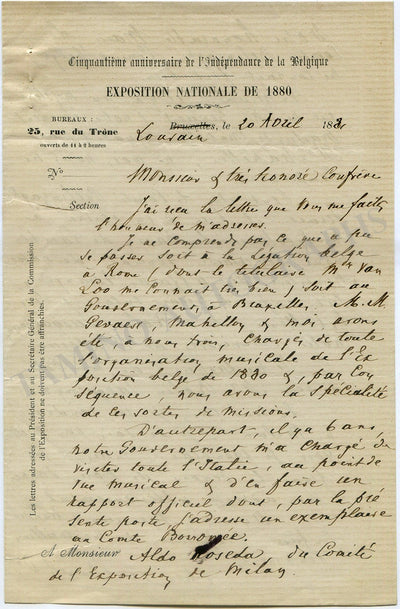 Cinquantième anniversaire de l'Indépendance de la Belgique
EXPOSITION NATIONALE DE 1880
BUREAUX :
25, rue du Trône
ouverts de 11 à 2 heures
Bruxelles, le 20 Avril 1881
Louvain
No
Section
Monsieur & très honoré Confrère
J'ai reçu la lettre que vous me faites
l'honneur de m'adresser.
Je ne comprends pas ce que a pu
se passer soit à la légation belge
à Rome, dont le titulaire Mr Van
Loo me connait très bien, soit au
Gouvernement, à Bruxelles. M.M.
Gevaert, Mahillon & moi avons
été à nous trois, chargés de toute
l'organisation musicale de l'Ex
position belge de 1880 &, par con
séquence, nous avons la spécialité
de ces sortes de missions.
D'autre part, il y a 6 ans,
notre Gouvernement m'a chargé de
visiter toute l'Italie, au point de
vue musical & d'en faire un
rapport officiel dont, par la pré
sente poste, j'adresse un exemplaire
au Comte Borromeo.
A Monsieur Aldo Noseda, du Comité
de l'Exposition de Milan.
Les lettres adressées au Président et au Secrétaire Général de la Commission
de l'Exposition ne doivent pas être affranchies.